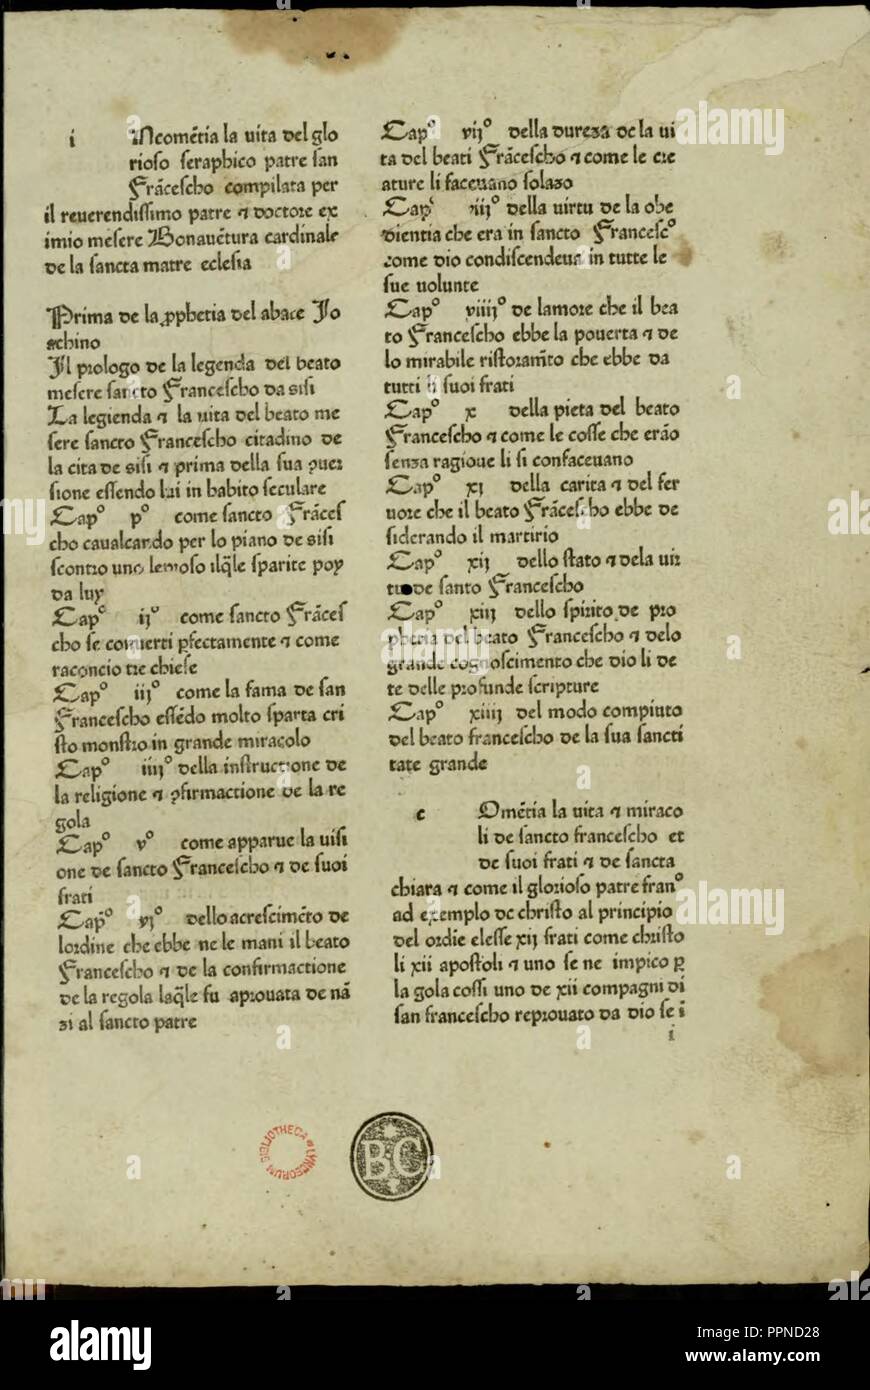 i Ncomēcia la uita del glo
rioso seraphico patre san
Frācescho compilata per
il reuerendissimo patre ⁊ doctore ex
imio mesere Bonauētura cardinale
de la sancta matre eclesia
Prima de la ꝓphetia del abate Jo
achino
Il prologo de la legenda del beato
mesere sancto Francescho da sisi
La legienda ⁊ la uita del beato me
sere sancto Francescho citadino de
la cita de sisi ⁊ prima della sua
sione essendo lui in habito seculare
Capº pº come sancto Frāces
cho caualcando per lo piano de sisi
scontro uno leproso ilq̄le sparite poy
da luy
Capº ijº come sancto Frāces
cho se conuerti pfectamente ⁊ come
raconcio tre chiese
Capº iijº come la fama de san
Francescho essēdo molto sparta cri
sto monstro in grande miracolo
Capº iiijº della instructione de
la religione ⁊ ꝯfirmactione de la re
gola
Capº vº come apparue la uisi
one de sancto Francescho ⁊ de suoi
frati
Capº vjº dello acrescimēto de
lordine che ebbe ne le mani il beato
Francescho ⁊ de la confirmactione
de la regola laq̄le fu aprouata de nā
zi al sancto patre
Capº vijº della dureza de la ui
ta del beati Frācescho ⁊ come le cre
ature li faceuano solazo
Capº della uirtu de la obe
dientia che era in sancto Francescº
come dio condiscendeua in tutte le
sue uolunte
Capº viiijº de lamore che il bea
to Francescho ebbe la pouerta ⁊ de
lo mirabile ristoramīto che ebbe da
tutti li suoi frati
Capº x della pieta del beato
Francescho ⁊ come le cosse che erāo
senza ragioue li si confaceuano
Capº xj della carita ⁊ del fer
uore che il beato Frācescho ebbe de
siderando il martirio
Capº xij dello stato ⁊ dela uir
tu de santo Francescho
Capº xiij dello spirito de pro
phetia del beato Francescho ⁊ delo
grande cognoscimento che dio li de
te delle profunde scripture
Capº xiiij del modo compiuto
del beato francescho de la sua sancti
tate grande
c Omēcia la uita ⁊ miraco
li de sancto francescho et
de suoi frati ⁊ de sancta
chiara ⁊ come il glorioso patre franº
ad exemplo de christo al principio
del ordīe elesse xij frati come christo
li xii apostoli ⁊ uno se ne impico ꝑ
la gola cossi uno de xii compagni di
san francescho reprouato da dio se ī
i
BIBLIOTHECA LYNCEORUM
BC
alamy
Image ID: PPND28
www.alamy.com